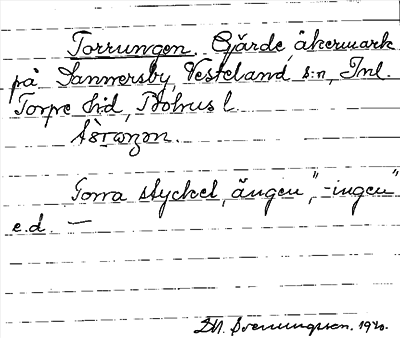 Torrungen. Gärde, åkermark
på Dannersby, Vesteland s:n, Inl.
Torpe hd, Bohus l.
Torra stycket, ängen", -ingen"
e.d. —
D.N. Svenungsson. 1920.